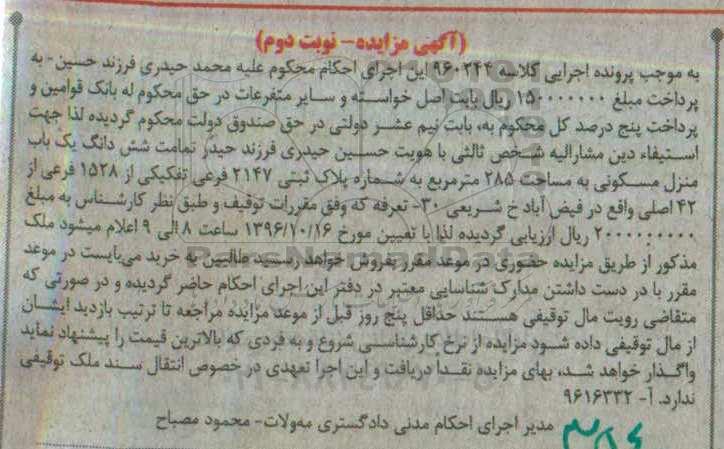 (آگهی مزایده- نوبت دوم)
به موجب پرونده اجرایی کلاسه ۹۶۰۲۴۴ این اجرای احکام محکوم علیه محمد حیدری فرزند حسین- به
پرداخت مبلغ ۱۵۰۰۰۰۰۰۰ ریال بابت اصل خواسته و سایر متفرعات در حق محکوم له بانک قوامین و
پرداخت پنج درصد کل محکوم به، بابت نیم عشر دولتی در حق صندوق دولت محکوم گردیده لذا جهت
استیفاء دین مشارالیه شخص ثالثی با هویت حسین حیدری فرزند حیدر تمامت شش دانگ یک باب
منزل مسکونی به مساحت ۲۸۵ مترمربع به شماره پلاک ثبتی ۲۱۴۷ فرعی تفکیکی از ۱۵۲۸ فرعی از
۴۲ اصلی واقع در فیض آباد خ شریعی ۳۰- تعرفه که وفق مقررات توقیف و طبق نظر کارشناس به مبلغ
۲۰۰۰۰۰۰۰۰۰ ریال ارزیابی گردیده لذا با تعیین مورخ ۱۳۹۶/۱۰/۱۶ ساعت ۸ الی ۹ اعلام میشود ملک
مذکور از طریق مزایده حضوری در موعد مقرر بفروش خواهد رسید طالبین به خرید می‌بایست در موعد
مقرر با در دست داشتن مدارک شناسایی معتبر در دفتر این اجرای احکام حاضر گردیده و در صورتی که
متقاضی رویت مال توقیفی هستند حداقل پنج روز قبل از موعد مزایده مراجعه تا ترتیب بازدید ایشان
از مال توقیفی داده شود مزایده از نرخ کارشناسی شروع و به فردی که بالاترین قیمت را پیشنهاد نماید
واگذار خواهد شد، بهای مزایده نقداً دریافت و این اجرا تعهدی در خصوص انتقال سند ملک توقیفی
ندارد. آ- ۹۶۱۶۳۳۲
مدیر اجرای احکام مدنی دادگستری مه‌ولات- محمود مصباح